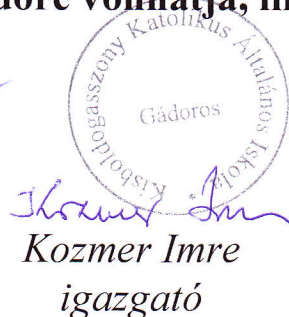 Kisboldogasszony Katolikus Általános Iskola
Gádoros
Kozmer Imre
Kozmer Imre
igazgató